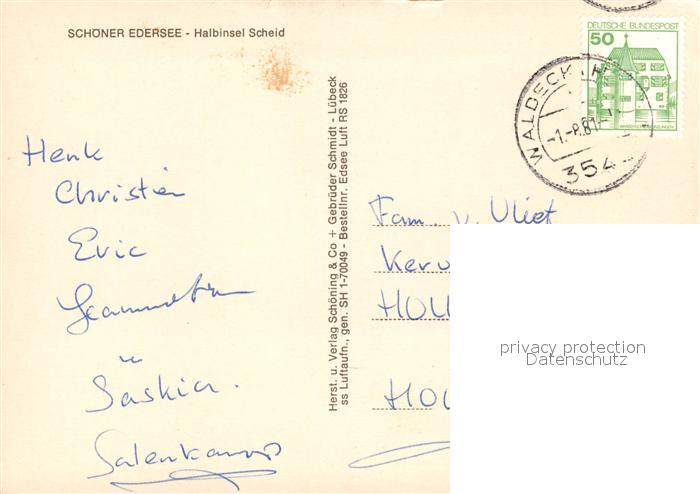 SCHÖNER EDERSEE - Halbinsel Scheid
DEUTSCHE BUNDESPOST
50
WALDECK
-1.-8.81
354
Henk
Christien
Eric
u
Saskia.
Fam. v. Vliet
HOU
HOU
Herst. u. Verlag Schöning & Co + Gebrüder Schmidt - Lübeck
ss Luftaufn., gen. SH 1-70049 - Bestellnr. Edsee Luft RS 1826
privacy protection
Datenschutz